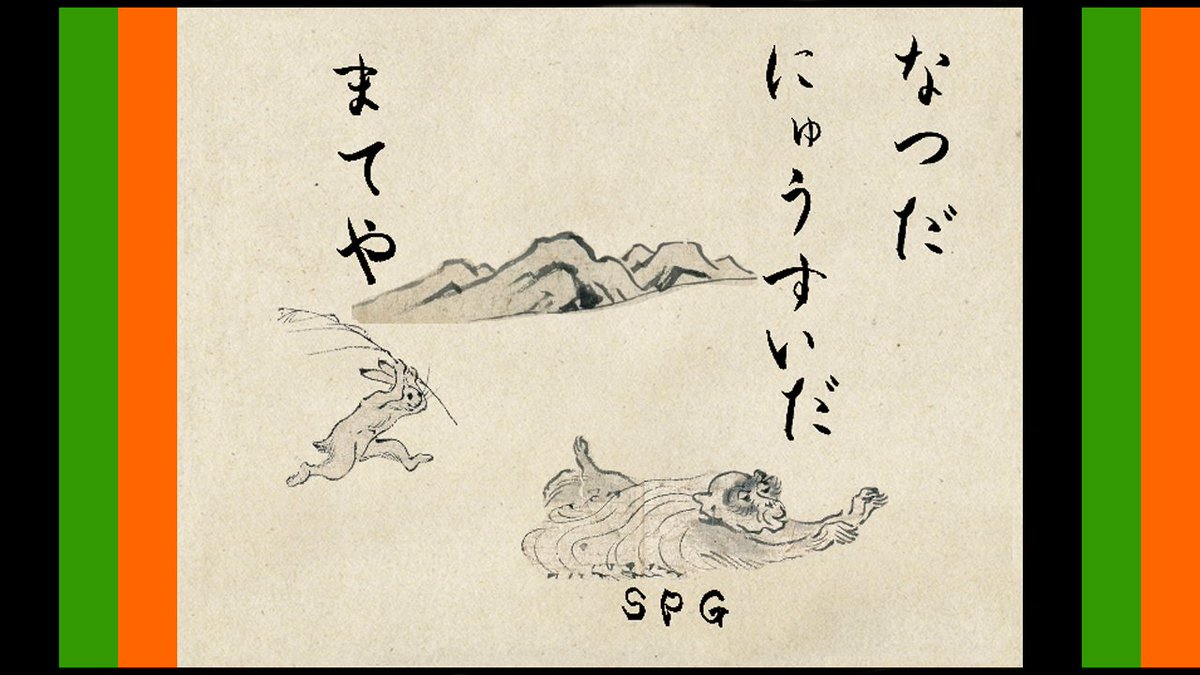 なつだ
にゅうすいだ
まてや
SPG